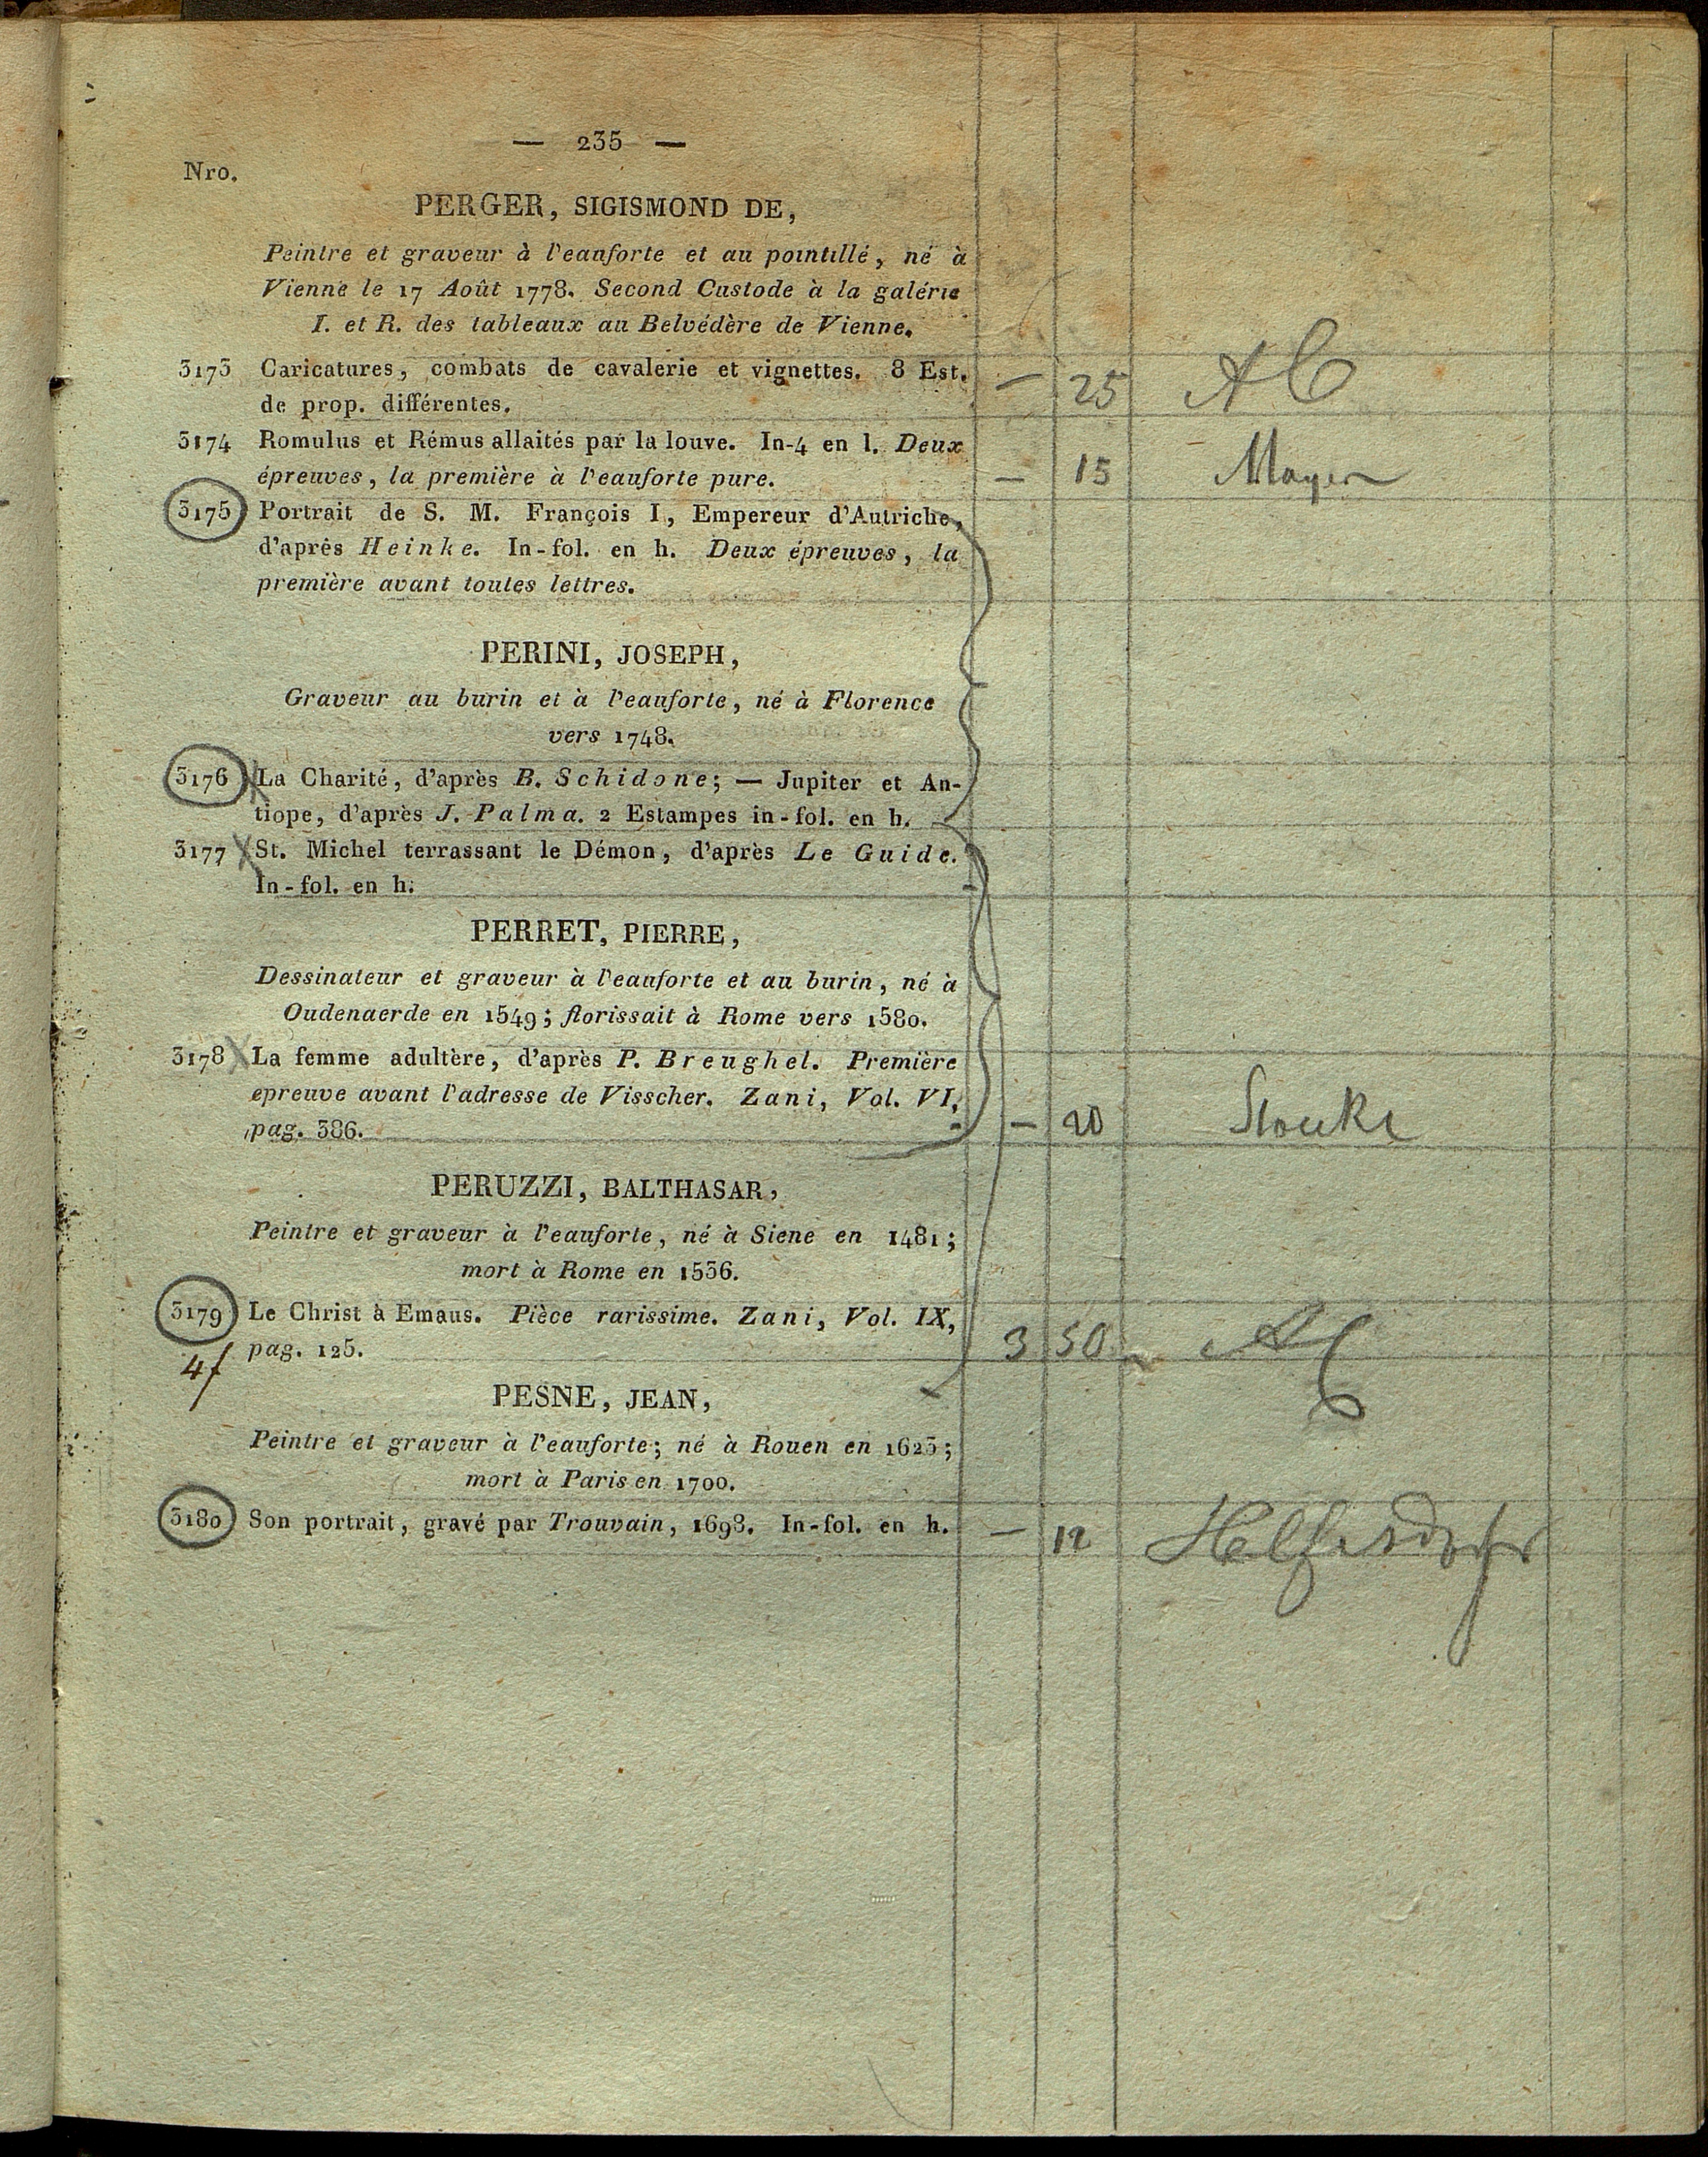 — 235 —
Nro.
PERGER, SIGISMOND DE,
Peintre et graveur à l'eauforte et au pointillé, né à
Vienne le 17 Août 1778. Second Custode à la galérie
I. et R. des tableaux au Belvédère de Vienne.
3173 Caricatures, combats de cavalerie et vignettes. 8 Est.
de prop. différentes. — 25 AC
3174 Romulus et Rémus allaités par la louve. In-4 en l. Deux
épreuves, la première à l'eauforte pure. — 15 Mayer
3175 Portrait de S. M. François I, Empereur d'Autriche,
d'après Heinke. In-fol. en h. Deux épreuves, la
première avant toutes lettres.
PERINI, JOSEPH,
Graveur au burin et à l'eauforte, né à Florence
vers 1748.
3176 La Charité, d'après B. Schidone; — Jupiter et An-
tiope, d'après J. Palma. 2 Estampes in-fol. en h.
3177 St. Michel terrassant le Démon, d'après Le Guide.
In-fol. en h.
PERRET, PIERRE,
Dessinateur et graveur à l'eauforte et au burin, né à
Oudenaerde en 1549; florissait à Rome vers 1580.
3178 La femme adultère, d'après P. Breughel. Première
epreuve avant l'adresse de Visscher. Zani, Vol. VI,
pag. 386. — 20
PERUZZI, BALTHASAR,
Peintre et graveur à l'eauforte, né à Siene en 1481;
mort à Rome en 1536.
3179 Le Christ à Emaus. Pièce rarissime. Zani, Vol. IX,
pag. 125. 3 50
4f
PESNE, JEAN,
Peintre et graveur à l'eauforte; né à Rouen en 1623;
mort à Paris en 1700.
3180 Son portrait, gravé par Trouvain, 1698. In-fol. en h. — 12